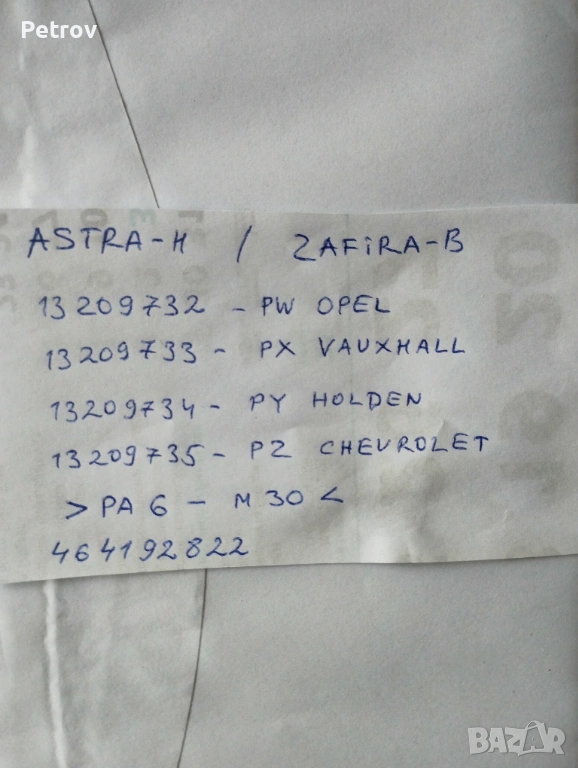 Petrov
ASTRA-H / ZAFiRA-B
13209732 - PW OPEL
13209733 - PX VAUXHALL
13209734 - PY HOLDEN
13209735 - PZ CHEVROLET
>PA 6 - M 30<
464192822
BAZAR